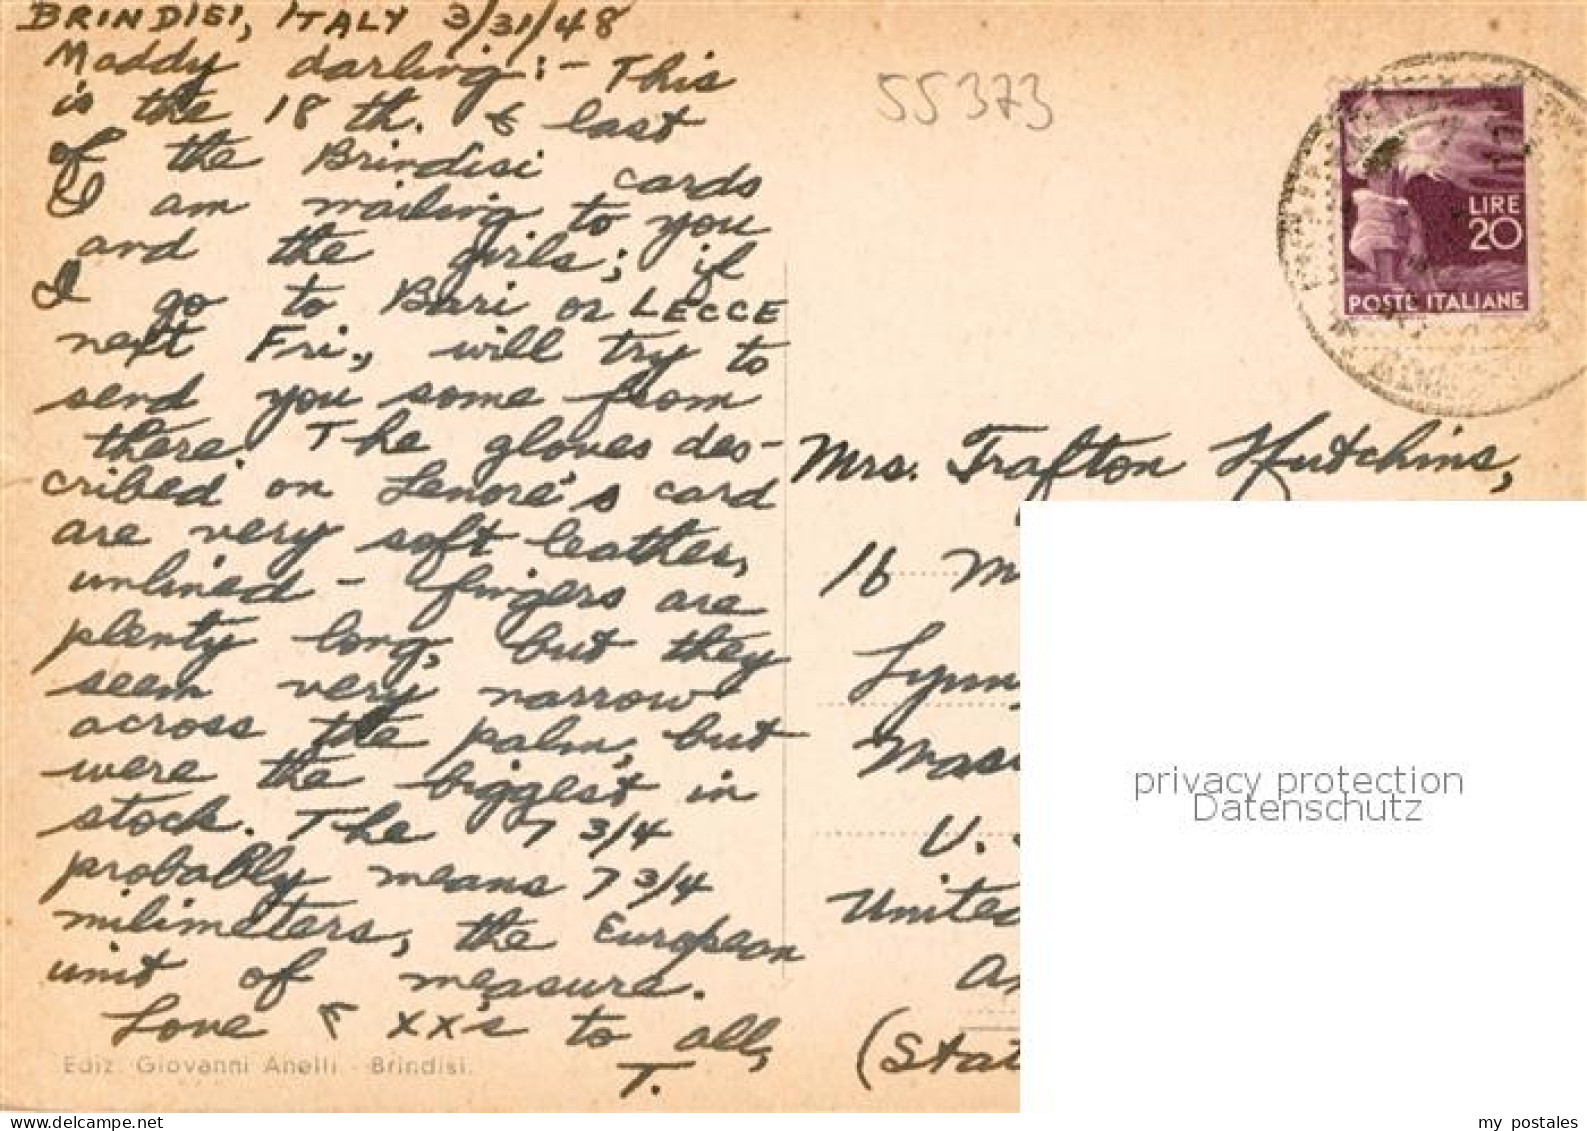 BRINDISI, ITALY 3/31/48
Maddy darling:- This
is the 18 th. & last
of the Brindisi cards
I am mailing to you
and the girls; if
I go to Bari or LECCE
next Fri., will try to
send you some from
there. The gloves des-
cribed on Lenore's card
are very soft leather,
unlined - fingers are
plenty long, but they
seem very narrow
across the palm, but
were the biggest in
stock. The 7 3/4
probably means 7 3/4
milimeters, the European
unit of measure.
Love & xx's to all,
T.
Ediz. Giovanni Anelli - Brindisi.
55373
LIRE
20
POSTE ITALIANE
Mrs. Trafton Hutchins,
16 M
Lynn
Mass
U.
United
Am
(Stat
privacy protection
Datenschutz
my postales